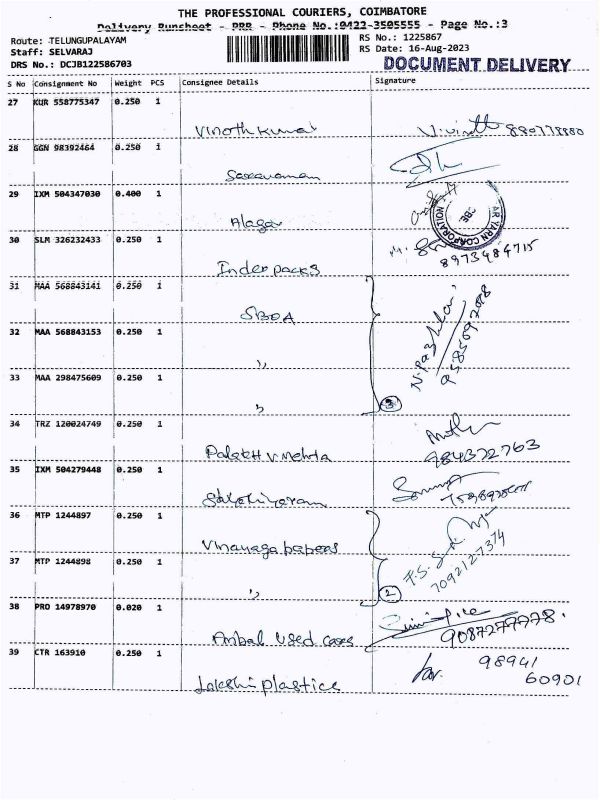 THE PROFESSIONAL COURIERS, COIMBATORE
Delivery Runsheet - PRR - Phone No.:0422-3505555 - Page No.:3
Route: TELUNGUPALAYAM
Staff: SELVARAJ
DRS No.: DCJB122586703
RS No.: 1225867
RS Date: 16-Aug-2023
DOCUMENT DELIVERY
S No Consignment No Weight PCS Consignee Details Signature
27 KUR 558775347 0.250 1
Vinoth kumar
28 GGN 98392464 0.250 1
Saravanan
29 IXM 504347030 0.400 1
Alagar
AR YARN CORPORATION
30 SLM 326232433 0.250 1
Inder packs 8973484715
31 MAA 568843141 0.250 1
SBOA
32 MAA 568843153 0.250 1
"
33 MAA 298475609 0.250 1
"
3
34 TRZ 120024749 0.250 1
984372763
35 IXM 504279448 0.250 1
36 MTP 1244897 0.250 1
Vinayaga papers
37 MTP 1244898 0.250 1
" 7092127374
2
38 PRO 14978970 0.020 1
Ambal used cases
39 CTR 163910 0.250 1
98941
60901
Lakshiplastics